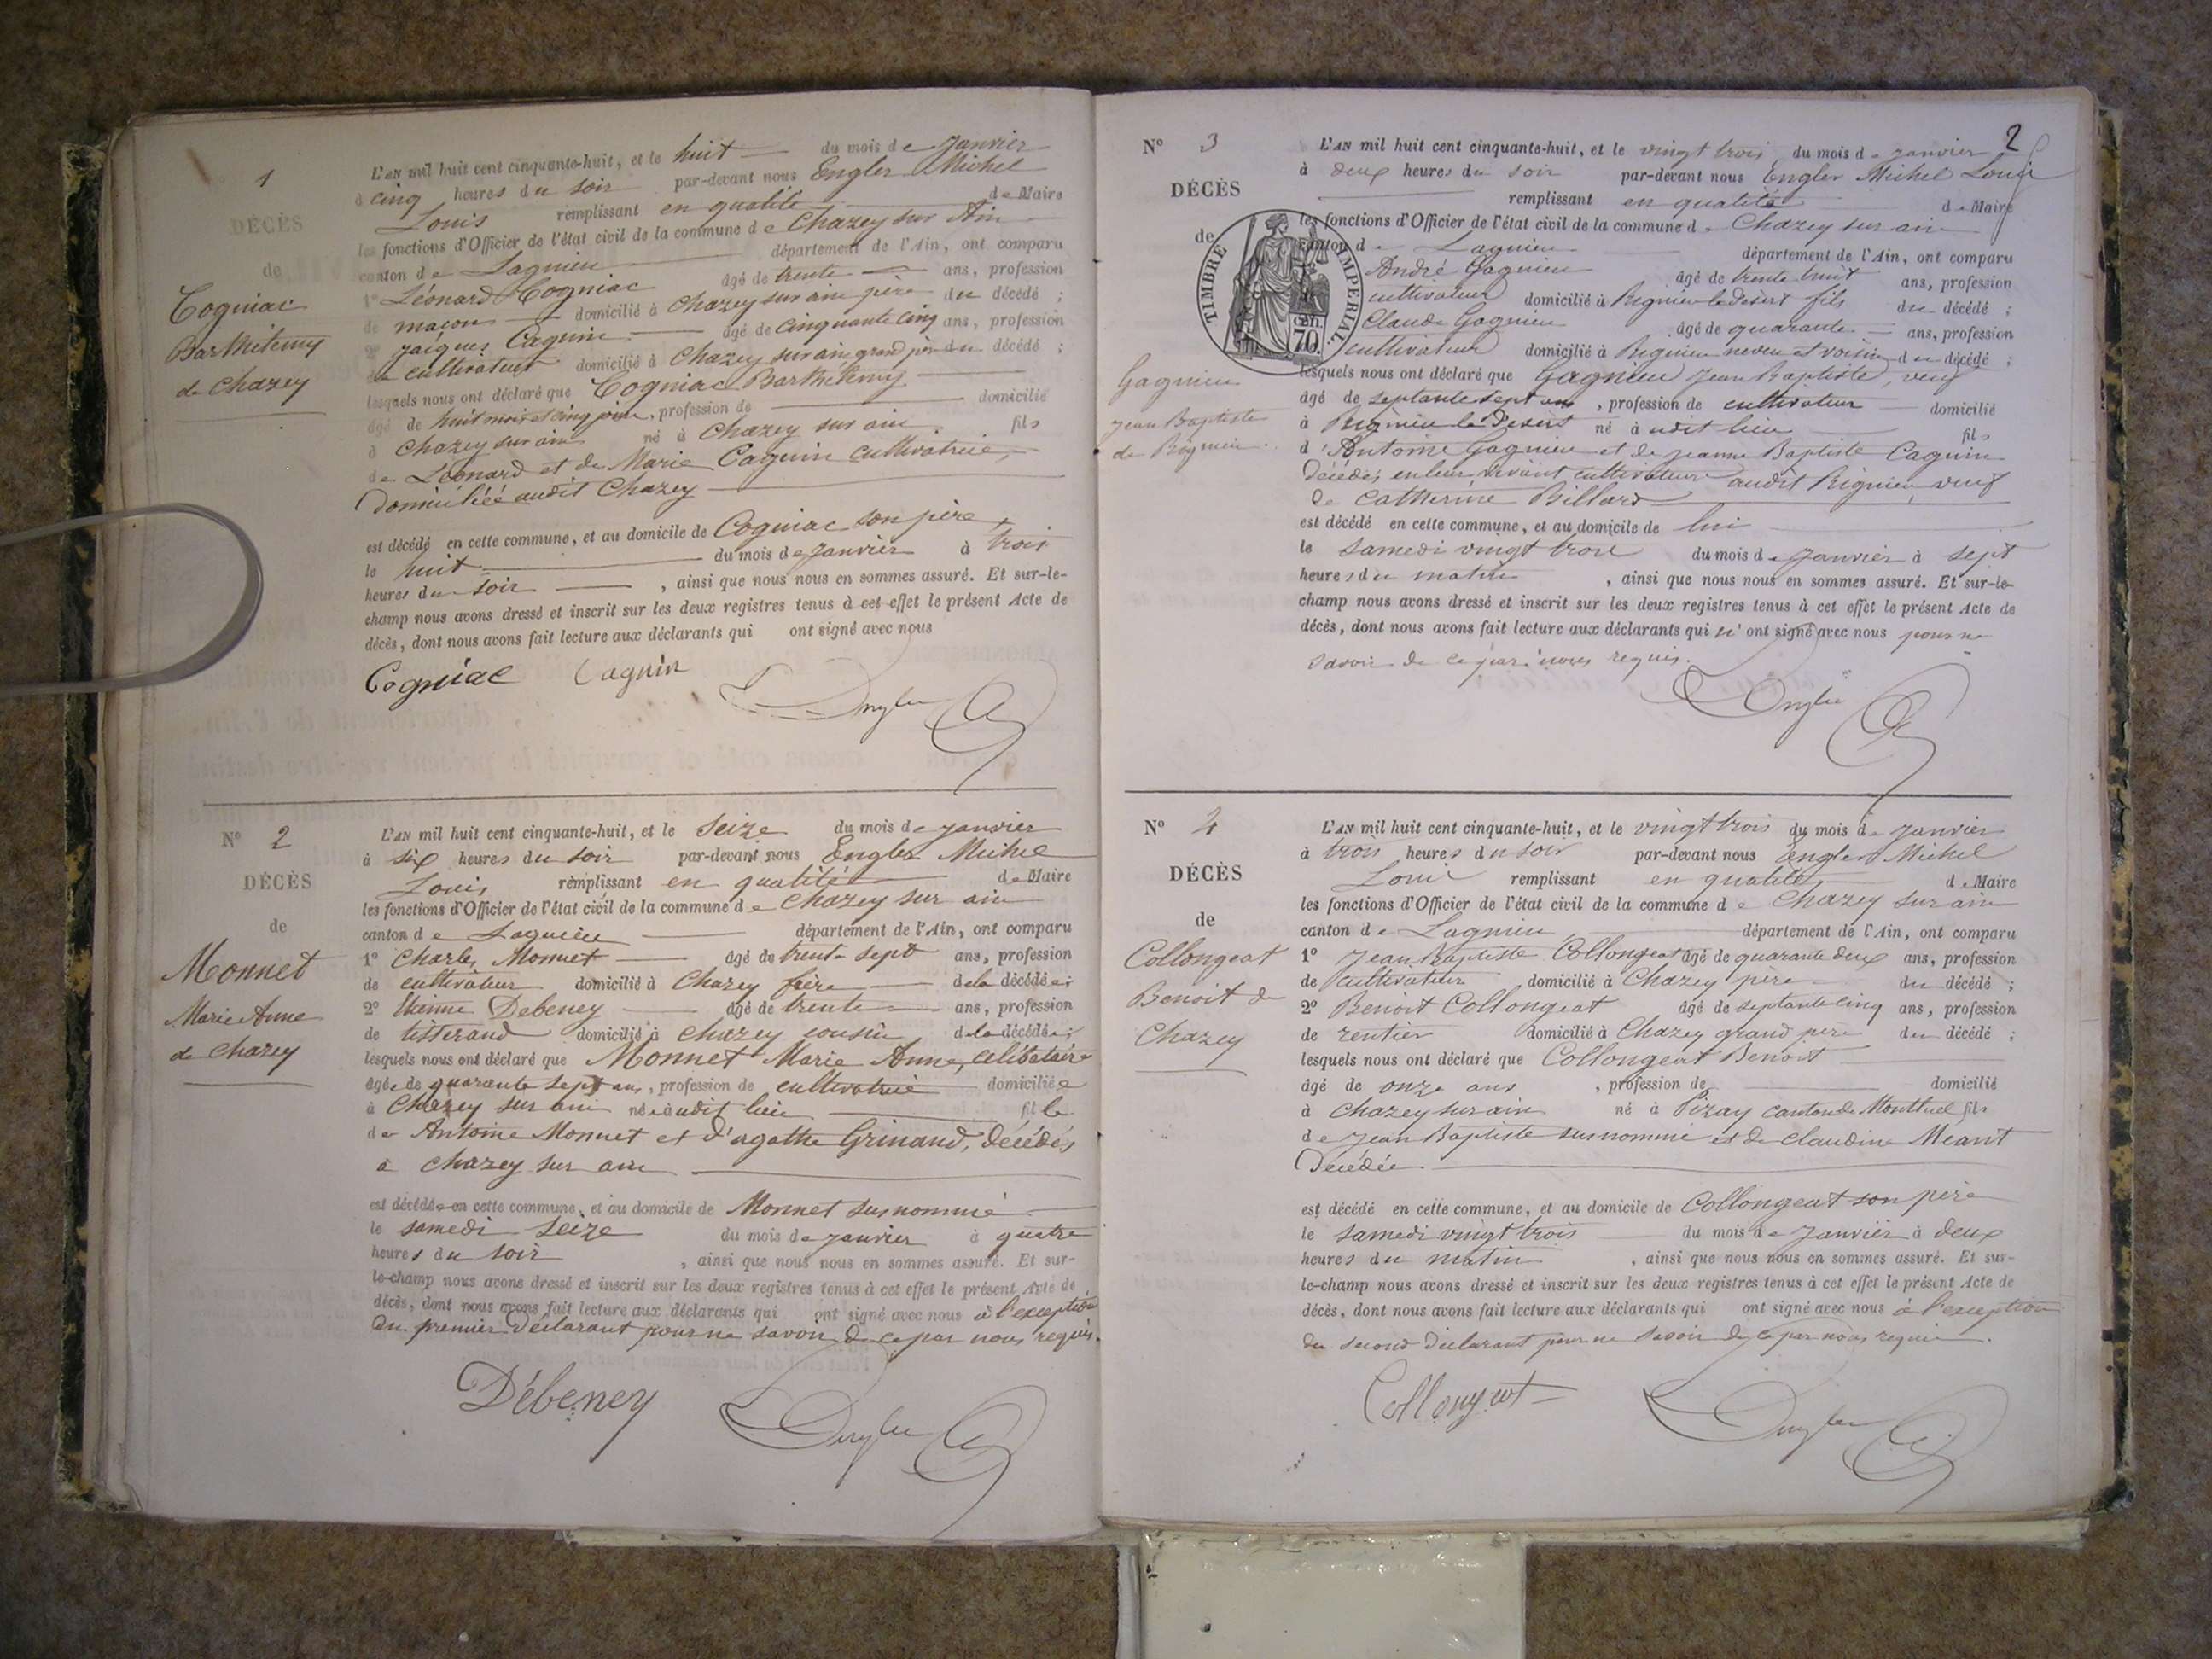 1
DÉCÈS
de
Cogniac
Barthélemy
de Chazey
L'AN mil huit cent cinquante-huit, et le huit du mois de Janvier
à cinq heures du soir par-devant nous Engler Michel
Louis remplissant en qualité de Maire
les fonctions d'Officier de l'état civil de la commune de Chazey sur Ain
canton de Lagnieu département de l'Ain, ont comparu
1° Léonard Cogniac âgé de trente ans, profession
de maçon domicilié à Chazey sur ain père du décédé ;
2° Jacques Caguin âgé de cinquante cinq ans, profession
de cultivateur domicilié à Chazey sur ain grand père du décédé ;
lesquels nous ont déclaré que Cogniac Barthélemy
âgé de huit mois et cinq jours, profession de domicilié
à Chazey sur ain né à Chazey sur ain fils
de Léonard et de Marie Caguin cultivatrice,
domiciliée audit Chazey
est décédé en cette commune, et au domicile de Cogniac son père
le huit du mois de Janvier à trois
heures du soir , ainsi que nous nous en sommes assuré. Et sur-le-
champ nous avons dressé et inscrit sur les deux registres tenus à cet effet le présent Acte de
décès, dont nous avons fait lecture aux déclarants qui ont signé avec nous
Cogniac Caguin Engler
N° 2
DÉCÈS
de
Monnet
Marie Anne
de Chazey
L'AN mil huit cent cinquante-huit, et le seize du mois de janvier
à six heures du soir par-devant nous Engler Michel
Louis remplissant en qualité de Maire
les fonctions d'Officier de l'état civil de la commune de Chazey sur ain
canton de Lagnieu département de l'Ain, ont comparu
1° Charles Monnet âgé de trente sept ans, profession
de cultivateur domicilié à Chazey frère de la décédée ;
2° Etienne Debeney âgé de trente ans, profession
de titterand domicilié à Chazey cousin de la décédée ;
lesquels nous ont déclaré que Monnet Marie Anne, célibataire
âgée de quarante sept ans, profession de cultivatrice domiciliée
à Chazey sur ain née audit lieu fille
de Antoine Monnet et d'agathe Grinand, décédés
à Chazey sur ain
est décédée en cette commune, et au domicile de Monnet susnommé
le samedi seize du mois de janvier à quatre
heures du soir , ainsi que nous nous en sommes assuré. Et sur-
le-champ nous avons dressé et inscrit sur les deux registres tenus à cet effet le présent Acte de
décès, dont nous avons fait lecture aux déclarants qui ont signé avec nous à l'exception
du premier déclarant pour ne savoir de ce par nous requis.
Débeney Engler
2
N° 3
DÉCÈS
de
TIMBRE IMPERIAL
CEN. 70.
Gagnieu
Jean Baptiste
de Rignieu
L'AN mil huit cent cinquante-huit, et le vingt trois du mois de janvier
à deux heures du soir par-devant nous Engler Michel Louis
remplissant en qualité de Maire
les fonctions d'Officier de l'état civil de la commune de Chazey sur ain
canton de Lagnieu département de l'Ain, ont comparu
André Gagnieu âgé de trente huit ans, profession
cultivateur domicilié à Rignieu le désert fils du décédé ;
Claude Gagnieu âgé de quarante ans, profession
cultivateur domicilié à Rignieu neveu et voisin du décédé ;
lesquels nous ont déclaré que Gagnieu Jean Baptiste, veuf
âgé de septante sept ans, profession de cultivateur domicilié
à Rignieu le Désert né à udit lieu fils
d'Antoine Gagnieu et de Jeanne Baptiste Caguin
décédés en leur vivant cultivateurs audit Rignieu, veuf
de Catherine Billard
est décédé en cette commune, et au domicile de lui
le samedi vingt trois du mois de Janvier à sept
heures du matin , ainsi que nous nous en sommes assuré. Et sur-le-
champ nous avons dressé et inscrit sur les deux registres tenus à cet effet le présent Acte de
décès, dont nous avons fait lecture aux déclarants qui n'ont signé avec nous pour ne
savoir de ce par nous requis.
Engler
N° 4
DÉCÈS
de
Collongeat
Benoit de
Chazey
L'AN mil huit cent cinquante-huit, et le vingt trois du mois de Janvier
à trois heures du soir par-devant nous Engler Michel
Louis remplissant en qualité de Maire
les fonctions d'Officier de l'état civil de la commune de Chazey sur ain
canton de Lagnieu département de l'Ain, ont comparu
1° Jean Baptiste Collongeat âgé de quarante deux ans, profession
de cultivateur domicilié à Chazey père du décédé ;
2° Benoit Collongeat âgé de septante cinq ans, profession
de rentier domicilié à Chazey grand père du décédé ;
lesquels nous ont déclaré que Collongeat Benoit
âgé de onze ans , profession de domicilié
à Chazey sur ain né à Pizay canton de Montluel fils
de Jean Baptiste susnommé et de Claudine Méant
Décédée
est décédé en cette commune, et au domicile de Collongeat son père
le samedi vingt trois du mois de Janvier à deux
heures du matin , ainsi que nous nous en sommes assuré. Et sur-
le-champ nous avons dressé et inscrit sur les deux registres tenus à cet effet le présent Acte de
décès, dont nous avons fait lecture aux déclarants qui ont signé avec nous à l'exception
du second déclarant pour ne savoir de ce par nous requis.
Collongeat Engler